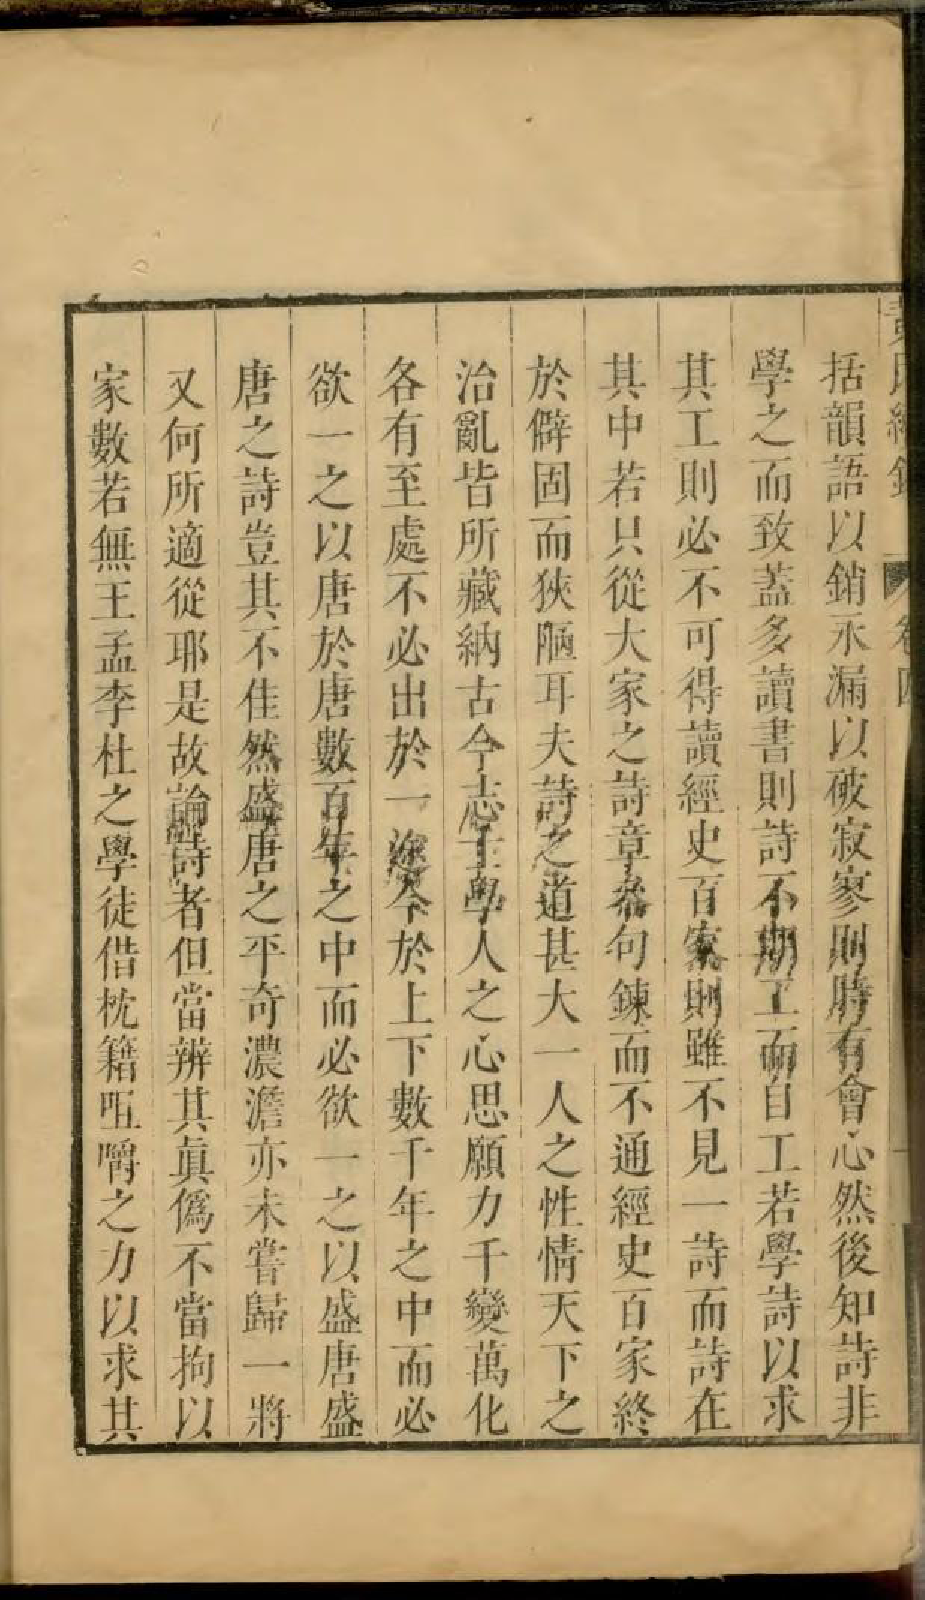 括韻語以銷永漏以破寂寥則時有會心然後知詩非
學之而致蓋多讀書則詩不期工而自工若學詩以求
其工則必不可得讀經史百家則雖不見一詩而詩在
其中若只從大家之詩章參句鍊而不通經史百家終
於僻固而狹陋耳夫詩之道甚大一人之性情天下之
治亂皆所藏納古今志士學人之心思願力千變萬化
各有至處不必出於一途今於上下數千年之中而必
欲一之以唐於唐數百年之中而必欲一之以盛唐盛
唐之詩豈其不佳然盛唐之平奇濃澹亦未嘗歸一將
又何所適從耶是故論詩者但當辨其眞僞不當拘以
家數若無王孟李杜之學徒借枕籍咀嚼之力以求其
卷四